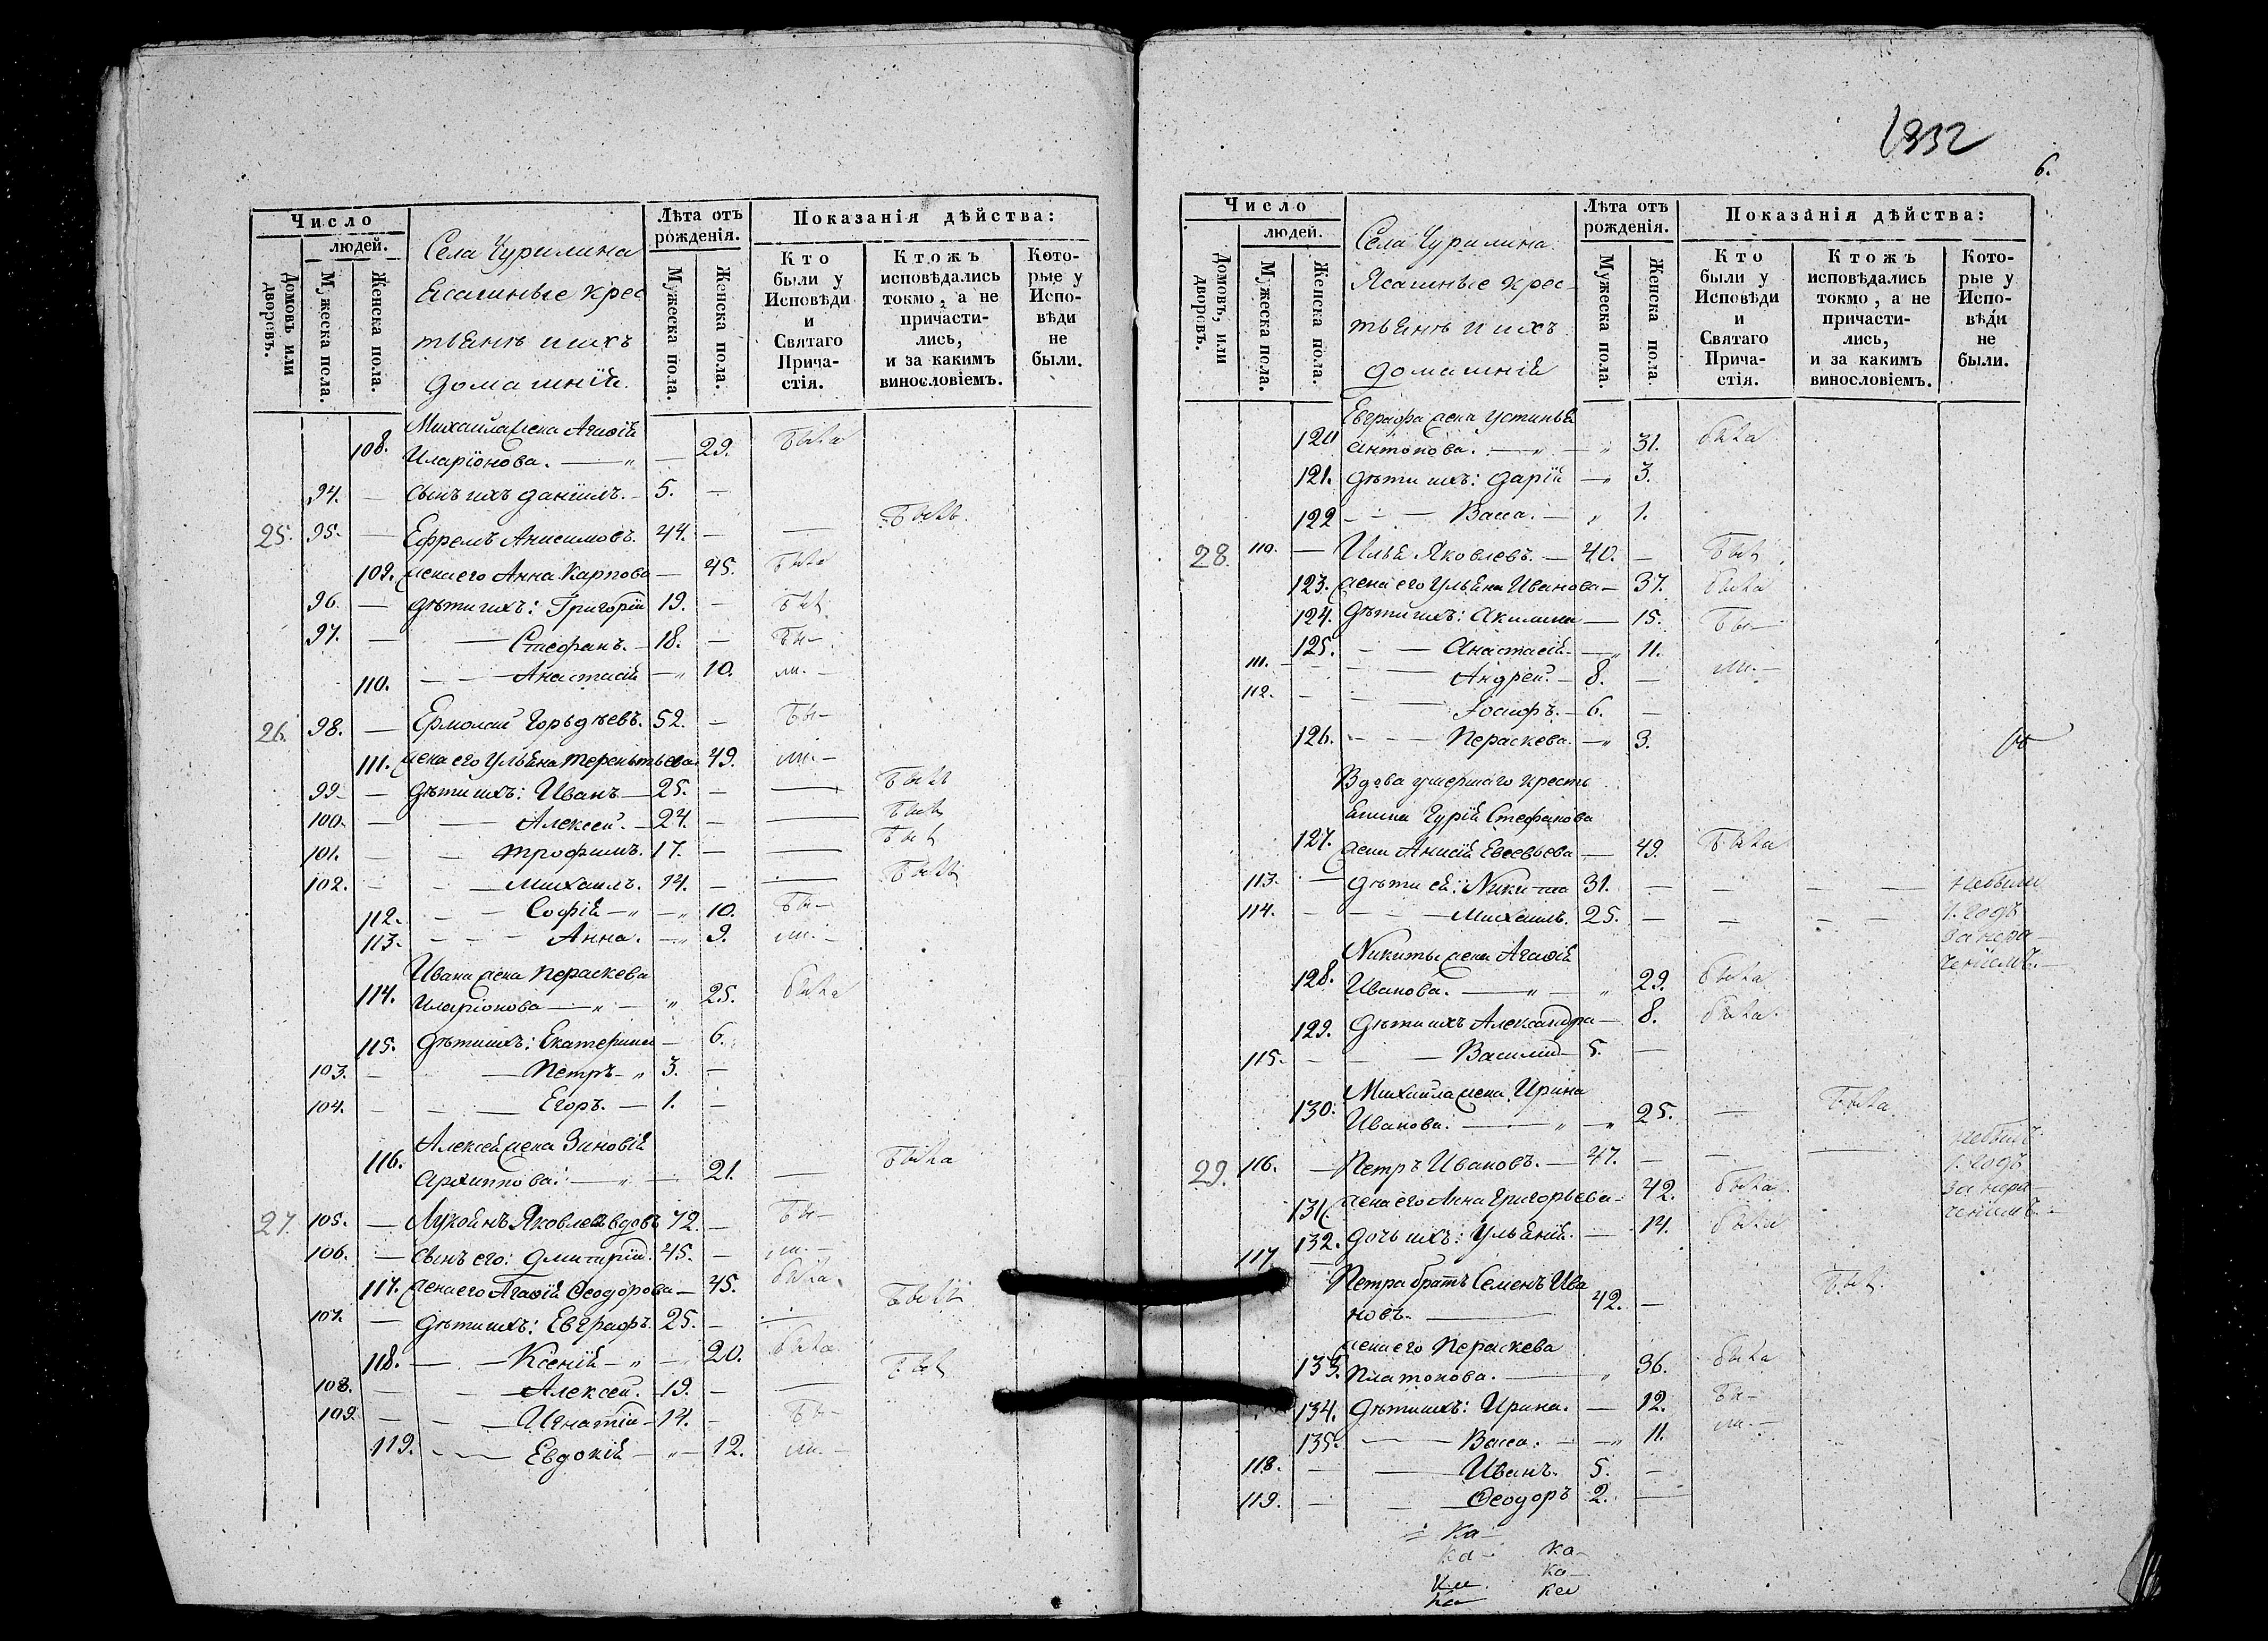 Число
людей.
Домовъ или дворовъ.
Мужеска пола.
Женска пола.
Села Чурилина
Ясашные крес
тьянъ и ихъ
домашнїй.
Лѣта отъ рожденія.
Мужеска пола.
Женска пола.
Показанія дѣйства:
Кто были у Исповѣди и Святаго Прича-стія.
Ктожъ исповѣдались токмо, а не причасти-лись, и за какимъ винословіемъ.
Кото-рые у Испо-вѣди не были.
Михайла жена Агаѳія
108. Иларіонова. — „ — 29. была
94. — сынъ ихъ Даніилъ. — 5. —
25. 95. — Ефремъ Анисимовъ. 44. — — былъ
109. жена его Анна Карпова — 45. была
96. — дѣти ихъ: Григорій 19. — был
97. — — Стефанъ. — 18. — бы—
110. — — Анастасія — „ 10. ли. —
26. 98. — Ермолай Гордѣевъ. 52. — бы—
111. жена его Ульяна Терентьева 49. ли. —
99. — дѣти ихъ: Иванъ — 25. — — был
100. — — Алексей. — 24. — — был
101. — — Трофимъ. 17. — — был
102. — — Михаилъ. 14. — — был
112. — — Софія — „ — „ 10. бы—
113. — — — Анна. — „ 9. ли. —
Ивана жена Пераскева
114. Иларіонова — „ — „ 25. была
115. дѣти ихъ: Екатерина — 6.
103. — — Петръ — „ 3. —
104. — — — Егоръ. — 1. —
Алексея жена Зиновія
116. Архиппова: — „ — 21. — была
27. 105. — Лукоянъ Яковлевъ вдовъ 72. — бы—
106. — сынъ его: Дмитрій. 45. — ли. —
117. жена его Агаѳія Ѳеодорова — 45. была
107. — дѣти ихъ: Евграфъ. 25. — — был
118. — — Ксенія — „ — 20. была
108. — — Алексей. — 19. — — был
109. — — Игнатій — 14. — бы—
119. — — Евдокія — „ — 12. ли. —
6.
Число
людей.
Домовъ, или дворовъ.
Мужеска пола.
Женска пола.
Села Чурилина
Ясашные крес—
тьянъ и ихъ
домашнїй
Лѣта отъ рожденія.
Мужеска пола.
Женска пола
Показанія дѣйства:
Кто были у Исповѣди и Святаго Прича-стія.
Ктожъ исповѣдались токмо, а не причасти-лись, и за какимъ винословіемъ.
Кото-рые у Испо-вѣди не были.
Евграфа жена Устинья
120 Антонова. — „ — „ 31. была
121. дѣти ихъ: Дарія — „ 3.
122 — — Васса. — „ 1.
28. 110. — Илья Яковлевъ. — 40. — был
123. жена его Ульяна Иванова — 37. была
124. дѣти ихъ: Акилина — 15. бы—
125. — — Анастасія — „ 11.
111. — — — Андрей. — 8. — ли. —
112. — — — Іосифъ. — 6. —
126. — — — Пераскева. — „ 3.
Вдова умершаго кресть
янина Гурія Стефанова
127. жена Анисія Евсевьева — 49. была
113. — дѣти ея: Никита 31. — — — небыли
114. — — — Михаилъ. 25. — — — 1. годъ
за нера—
Никиты жена Агаѳія
ченіемъ. —
128. Иванова. — „ — „ 29. была
129. дѣти ихъ Александра — 8. была
115. — — — Василій — 5. —
Михайла жена Ирина
130. Иванова. — „ — „ 25. — была
29. 116. — Петръ Ивановъ. — 47. — — — небылъ
1. годъ
131. жена его Анна Григорьева — 42. была
за нера—
132. дочь ихъ: Ульянія. — 14. была
ченіемъ. —
117. — Петра братъ Семенъ Ива
новъ. — 42. — был
жена его Пераскева
133. Платонова. — „ 36. была
134. дѣти ихъ: Ирина. — 12. бы—
135. — — Васса. — — „ 11. ли. —
118. — — Иванъ. 5. —
119. — — Ѳеодоръ 2. —
Ка—
Ка— ка—
Ка ка—
Ка ка